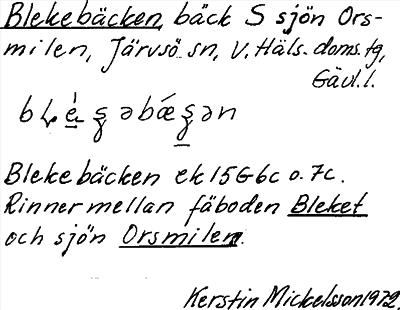 Blekebäcken, bäck S sjön Ors-
milen, Järvsö sn, V. Häls. doms. tg,
Gävl. l.
Blekebäcken ek 15G6c o. 7c.
Rinner mellan fäboden Bleket
och sjön Orsmilen.
Kerstin Mickelsson 1972.